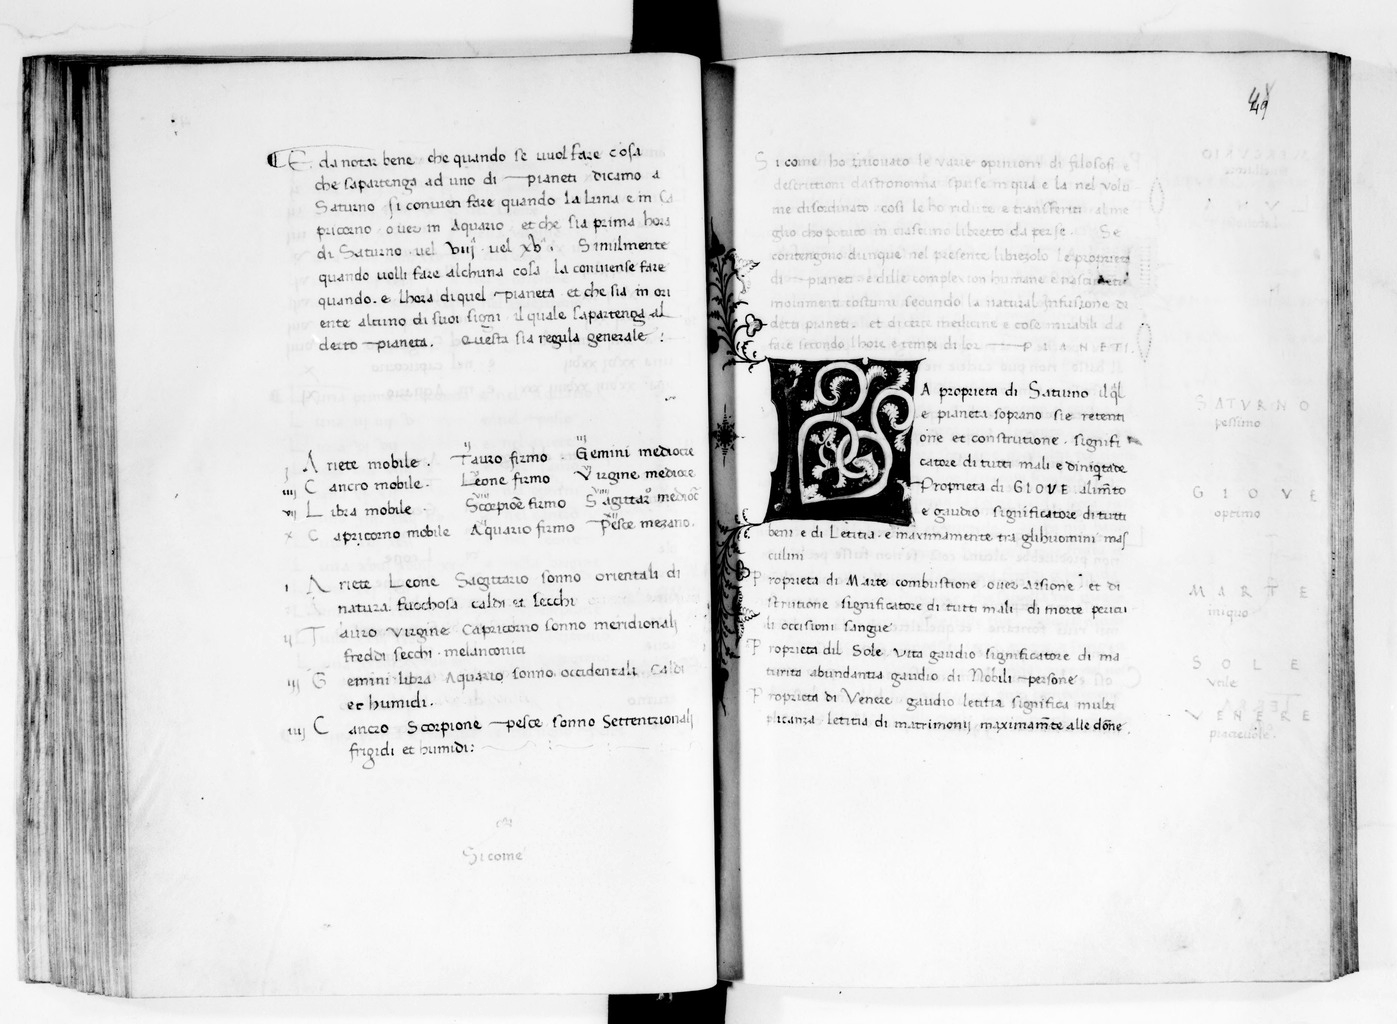 E da notar bene che quando se vuol fare cosa
che sapartenga ad uno di pianeti dicamo a
Saturno si convien fare quando la Luna e in Ca
pricorno over in Aquario et che sia prima hora
di Saturno vel viij vel xv. Similmente
quando volli fare alchuna cosa la conviense fare
quando e lhora di quel pianeta et che sia in ori
ente alcuno di suoi signi il quale sapartenga al
decto pianeta. Questa sia regula generale :
j A riete mobile . ij Tauro firmo iij Gemini mediocre
iiij C ancro mobile . Leone firmo Virgine mediocre
vij L ibra mobile viij Scorpione firmo Sagittar. medioc
x C apricorno mobile Aquario firmo Pesce mezano.
i A riete Leone Sagittario sonno orientali di
natura fucchosa caldi et secchi
ij T auro Virgine Capricorno sonno meridionali
freddi secchi melanconici
iij G emini libra Aquario sonno occidentali caldi
et humidi.
iiij C ancro Scorpione pesce sonno Settentrionali
frigidi et humidi:
Si come
49
S i come ho trovato le varie opinioni di filosofi e
descrittioni dastronomia sparse in qua e la nel volu
me disordinato cosi le ho ridutte e transferiti al me
glio cho potuto in questo libretto da perse. Se
contengono dunque nel presente libriezolo le proprieta
di pianeti e dille complexion humane e
movimenti costumi secundo la natural infusione de
detti pianeti. et dictæ medicine e cose mirabili da
fare secondo lhore e tempi di lor PIANETI.
LA proprieta di Saturno il ql
e pianeta soprano sie retenti
one et construtione. signifi
catore di tutti mali e diniqtade
Proprieta di GIOVE alimto
e gaudio significatore di tutti
beni e di Letitia e maximamente tra glihuomini mas
culini
P roprieta di Marte combustione over arsione et di
strutione significatore di tutti mali di morte pericu
li occisioni sangue
P roprieta dil Sole vita gaudio significatore di ma
turita abundantia gaudio di Nobili persone
P roprieta di Venere gaudio letitia significa multi
plicanza letitia di matrimonij maximamte alle done.
SATVRNO
pessimo
GIOVE
optimo
MARTE
iniquo
SOLE
utile
VENERE
piacevole.